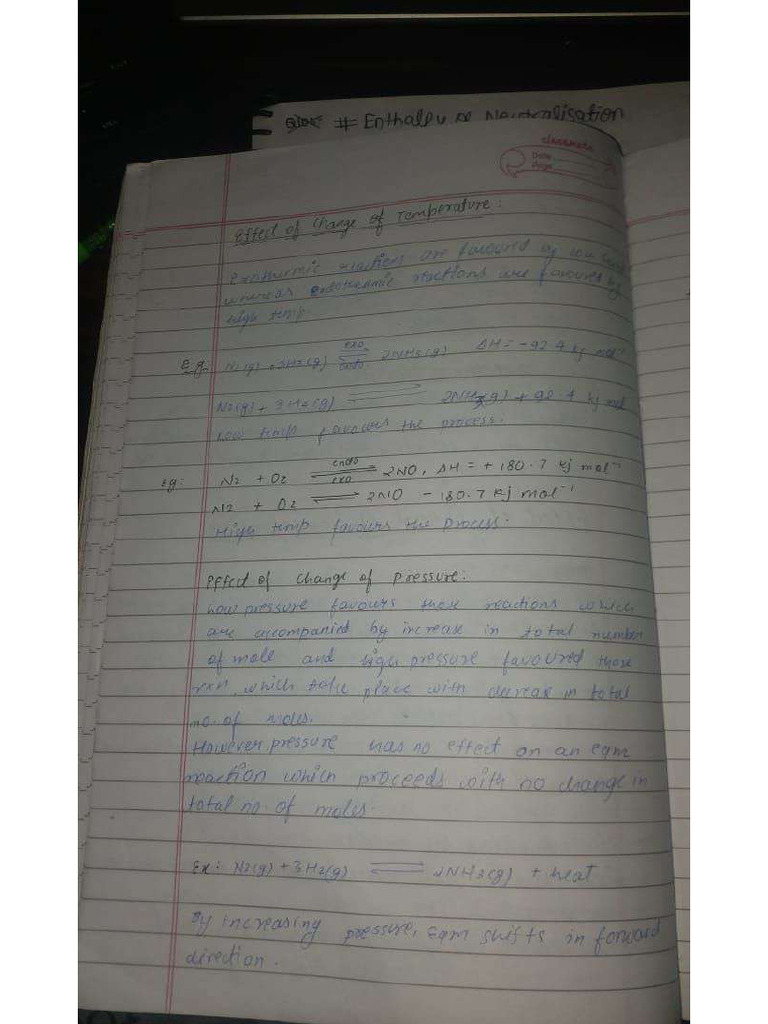 # Enthalpy of Neutralisation
classmate
Date
Page
Effect of Change of Temperature:
Exothermic reactions are favoured by low temp
whereas endothermic reactions are favoured by
high temp.
Eg: N2(g) + 3H2(g) exo ⇌ endo 2NH3(g) ΔH = -92.4 kj mol-1
N2(g) + 3H2(g) ⇌ 2NH3(g) + 92.4 kj mol
Low temp favours the process.
Eg: N2 + O2 endo ⇌ exo 2NO, ΔH = + 180.7 kj mol-1
N2 + O2 ⇌ 2NO - 180.7 kj mol-1
High temp favours the process.
Effect of change of Pressure:
Low pressure favours those reactions which
are accompanied by increase in total number
of mole and high pressure favoured those
rxn, which take place with decrease in total
no. of moles.
However pressure has no effect on an eqm
reaction which proceeds with no change in
total no. of moles.
Ex: N2(g) + 3H2(g) ⇌ 2NH3(g) + heat
By increasing pressure, eqm shifts in forward
direction.